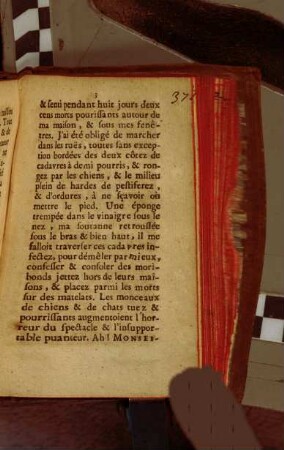 3
& semi pendant huit jours deux
cens morts pourrissants autour de
ma maison, & sous mes fenê-
tres. J'ai été obligé de marcher
dans les ruës, toutes sans excep-
tion bordées des deux côtez de
cadavres à demi pourris, & ron-
gez par les chiens, & le milieu
plein de hardes de pestiferez,
& d'ordures, à ne sçavoir où
mettre le pied. Une éponge
trempée dans le vinaigre sous le
nez, ma soutanne retroussée
sous le bras & bien haut, il me
falloit traverser ces cadavres in-
fectez, pour démêler parmi eux,
confesser & consoler des mori-
bonds jettez hors de leurs mai-
sons, & placez parmi les morts
sur des matelats. Les monceaux
de chiens & de chats tuez &
pourrissants augmentoient l'hor-
reur du spectacle & l'insuppor-
table puanteur. Ah! MONSEI-